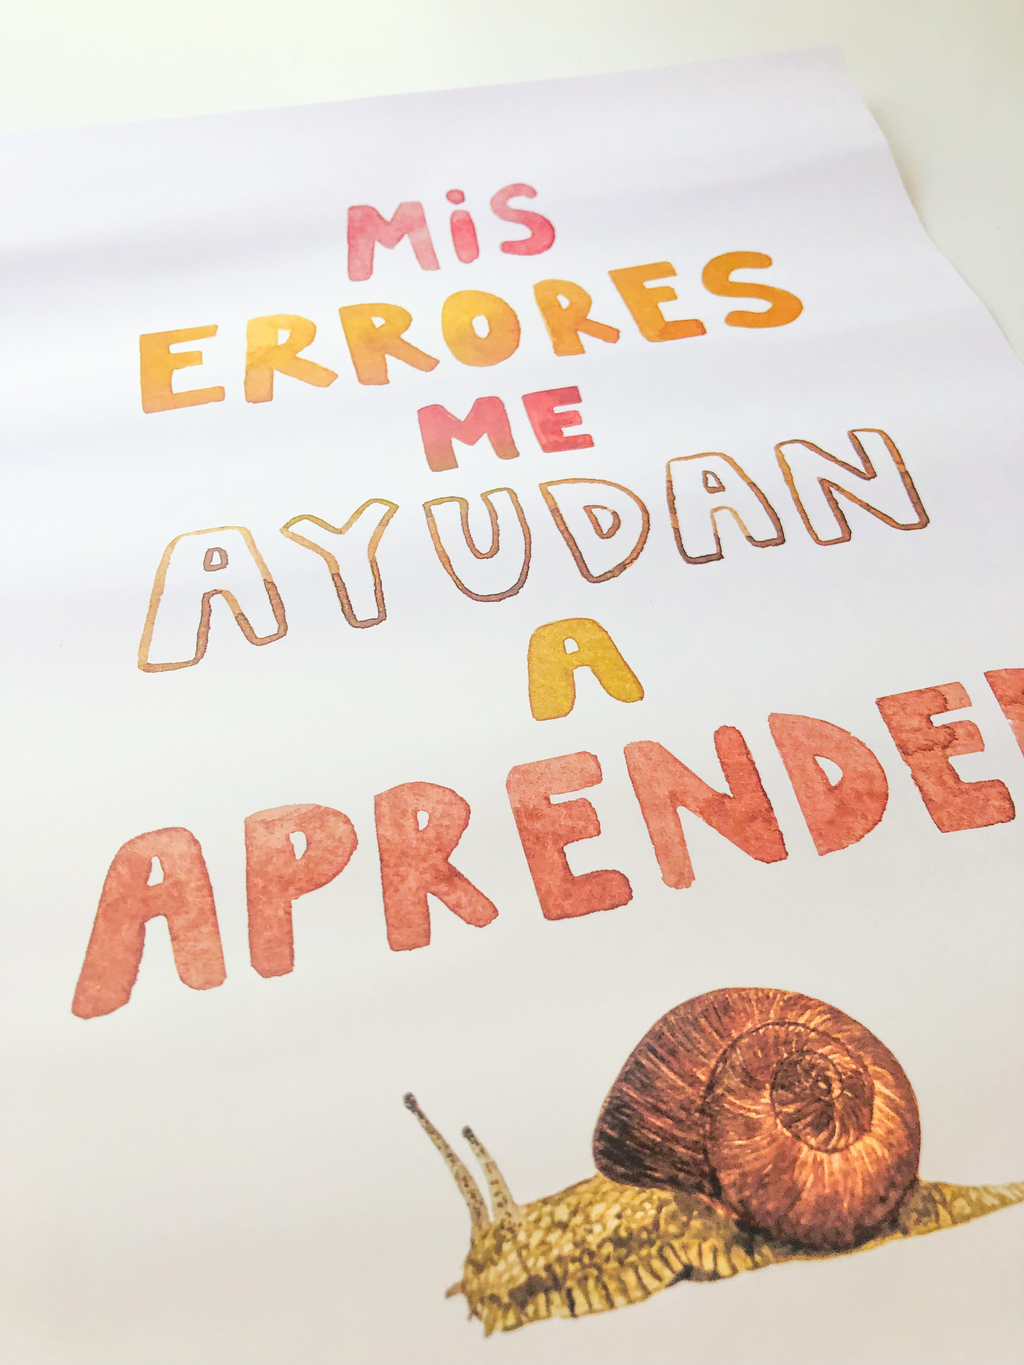 MiS
ERRORES
ME
AYUDAN
A
APRENDER